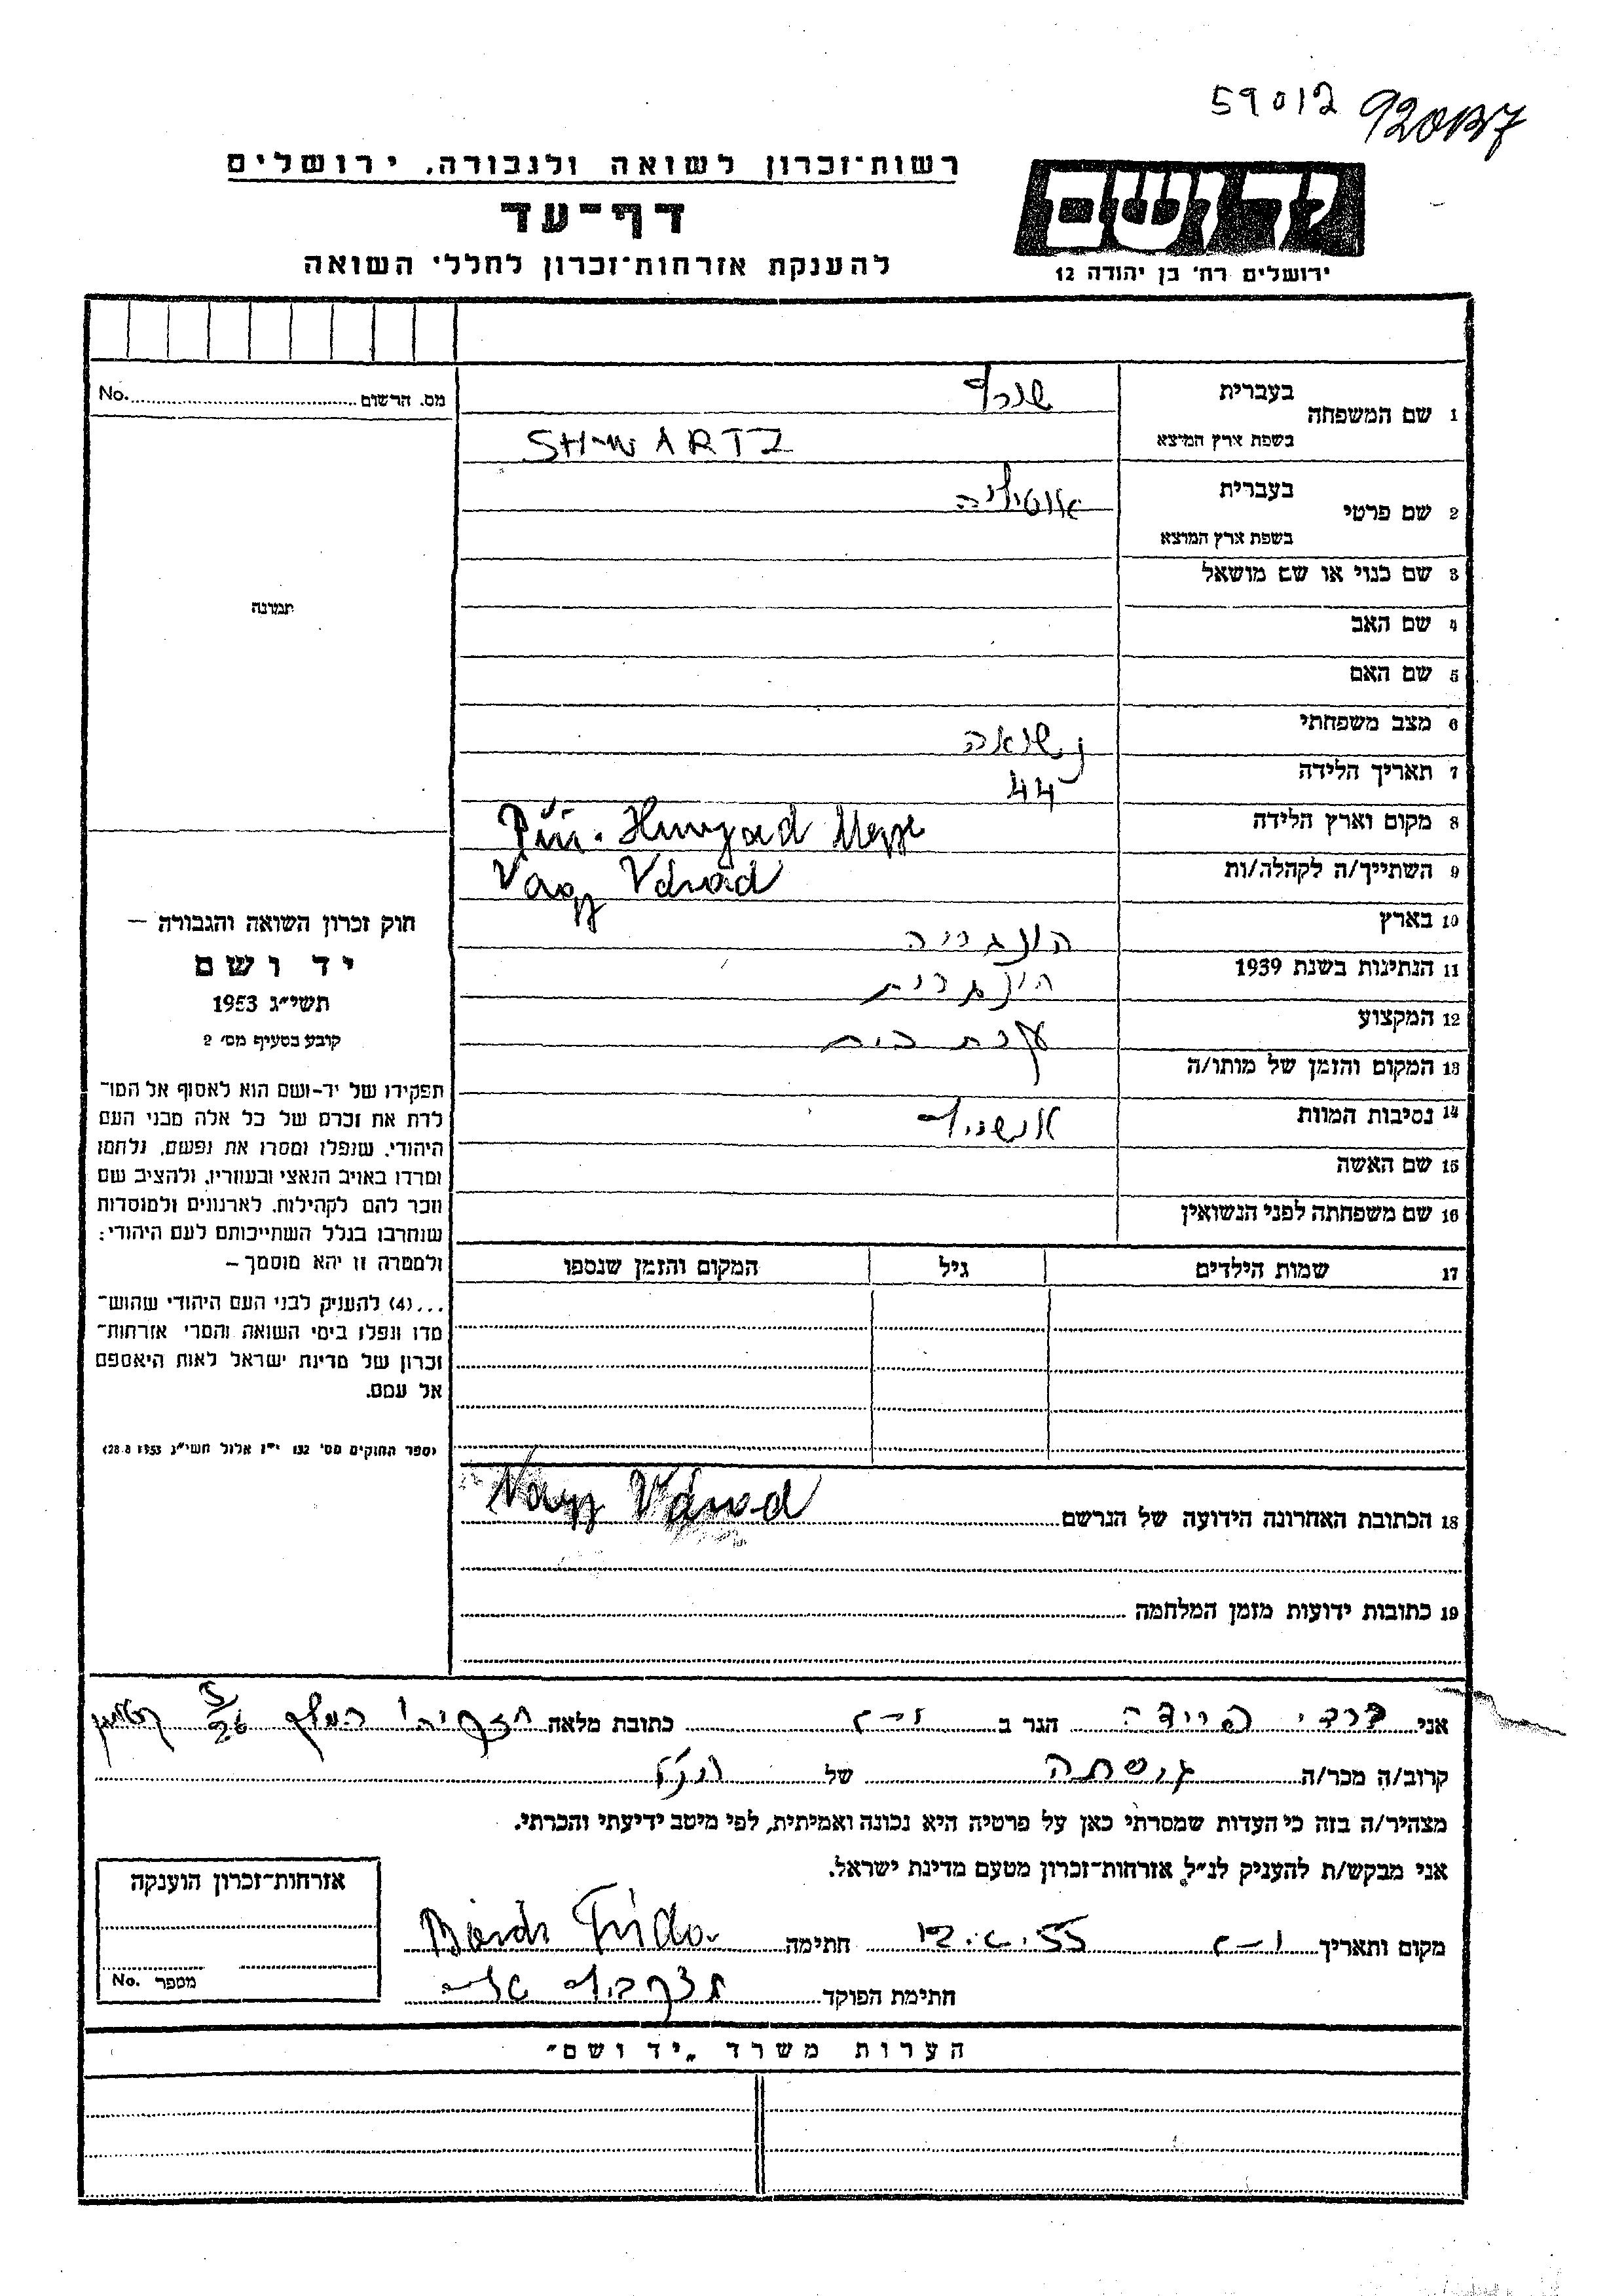 59012
רשות־זכרון לשואה ולגבורה, ירושלים
דף־עד
להענקת אזרחות־זכרון לחללי השואה
יד ושם
ירושלים רח' בן יהודה 12
מס. הרשום No.
1 שם המשפחה
בעברית שורץ
בשפת ארץ המוצא SHWARTZ
2 שם פרטי
בעברית אוטיליה
בשפת ארץ המוצא
3 שם כנוי או שם מושאל
4 שם האב
5 שם האם
6 מצב משפחתי נשואה
7 תאריך הלידה 44
8 מקום וארץ הלידה Hunyad Megye
9 השתייך/ה לקהלה/ות Nagy Várad
10 בארץ הונגריה
11 הנתינות בשנת 1939 הונגרית
12 המקצוע עקרת בית
13 המקום והזמן של מותו/ה
14 נסיבות המוות אושויץ
15 שם האשה
16 שם משפחתה לפני הנשואין
17 שמות הילדים גיל המקום והזמן שנספו
תמונה
חוק זכרון השואה והגבורה —
יד ושם
תשי״ג 1953
קובע בסעיף מס' 2
תפקידו של יד-ושם הוא לאסוף אל המו־
לדת את זכרם של כל אלה מבני העם
היהודי, שנפלו ומסרו את נפשם, נלחמו
ומרדו באויב הנאצי ובעוזריו, ולהציב שם
וזכר להם לקהילות, לארגונים ולמוסדות
שנחרבו בגלל השתייכותם לעם היהודי;
ולמטרה זו יהא מוסמך —
...(4) להעניק לבני העם היהודי שהוש־
מדו ונפלו בימי השואה והמרי אזרחות־
זכרון של מדינת ישראל לאות היאספם
אל עמם.
(ספר החוקים מס' 132 י״ז אלול תשי״ג 28.8.1953)
18 הכתובת האחרונה הידועה של הנרשם Nagy Várad
19 כתובות ידועות מזמן המלחמה
אני ברדי פרידה הגר ב כתובת מלאה חזקיהו המלך קטמון
קרוב/ה מכר/ה גיסתה של הנ״ל
מצהיר/ה בזה כי העדות שמסרתי כאן על פרטיה היא נכונה ואמיתית, לפי מיטב ידיעתי והכרתי.
אני מבקש/ת להעניק לנ״ל אזרחות־זכרון מטעם מדינת ישראל.
מקום ותאריך 55 חתימה Bárdi Frida
חתימת הפוקד
אזרחות־זכרון הוענקה
מספר No.
הערות משרד „יד ושם״